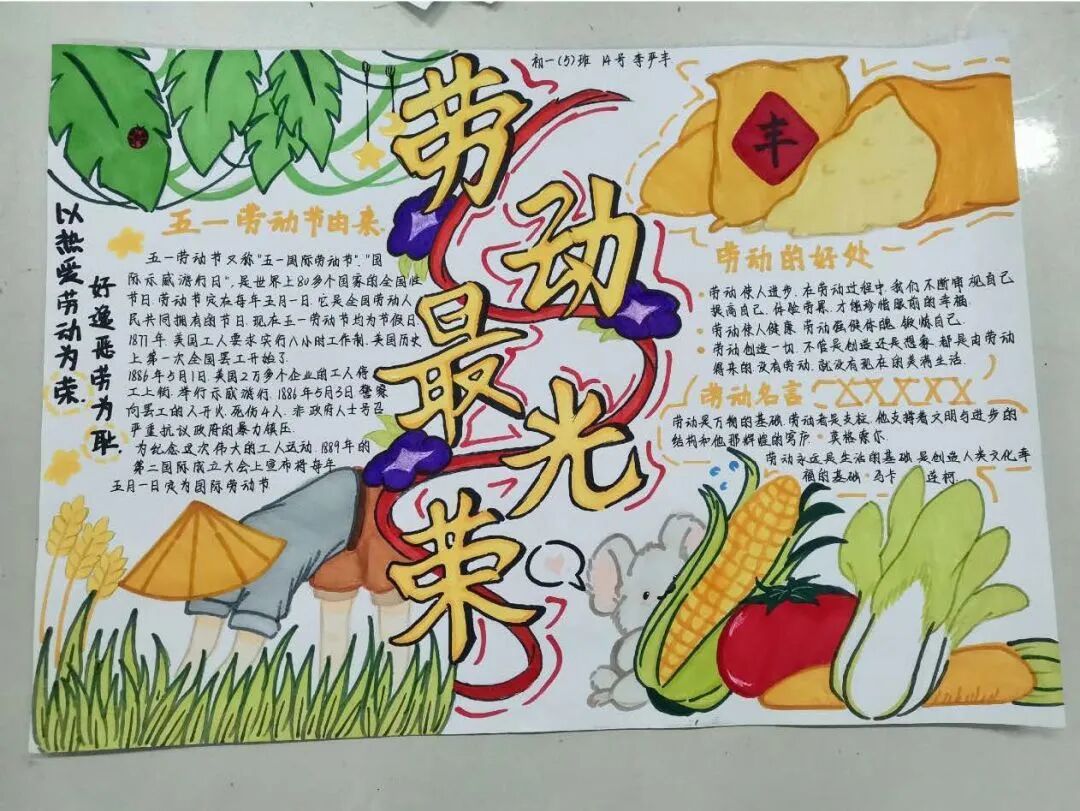 初一(5)班 14号 李严丰
劳动最光荣
以热爱劳动为荣
好逸恶劳为耻
五一劳动节由来
五一劳动节又称"五一国际劳动节","国
际示威游行日",是世界上80多个国家的全国性
节日.劳动节定在每年五月一日.它是全国劳动人
民共同拥有的节日.现在五一劳动节均为节假日.
1877年.美国工人要求实行八小时工作制.美国历史
上第一次全国罢工开始了.
1886年5月1日.美国2万多个企业的工人停
工上街.举行示威游行.1886年5月3日警察
向罢工的人开火.死伤4人.非政府人士号召
严重抗议政府的暴力镇压.
为纪念这次伟大的工人运动.1889年的
第二国际成立大会上宣布将每年
五月一日定为国际劳动节
丰
劳动的好处
劳动使人进步.在劳动过程中.我们不断审视自己
提高自己.体验劳累.才能珍惜眼前的幸福.
劳动使人健康.劳动强健体魄.锻炼自己.
劳动创造一切.不管是创造还是想象.都是由劳动
得来的.没有劳动.就没有现在的美满生活.
劳动名言
劳动是万物的基础.劳动者是支柱.他支持着文明与进步的
结构和他那辉煌的穹庐 英格索尔
劳动永远是生活的基础.是创造人类文化幸
福的基础 马卡 连柯.